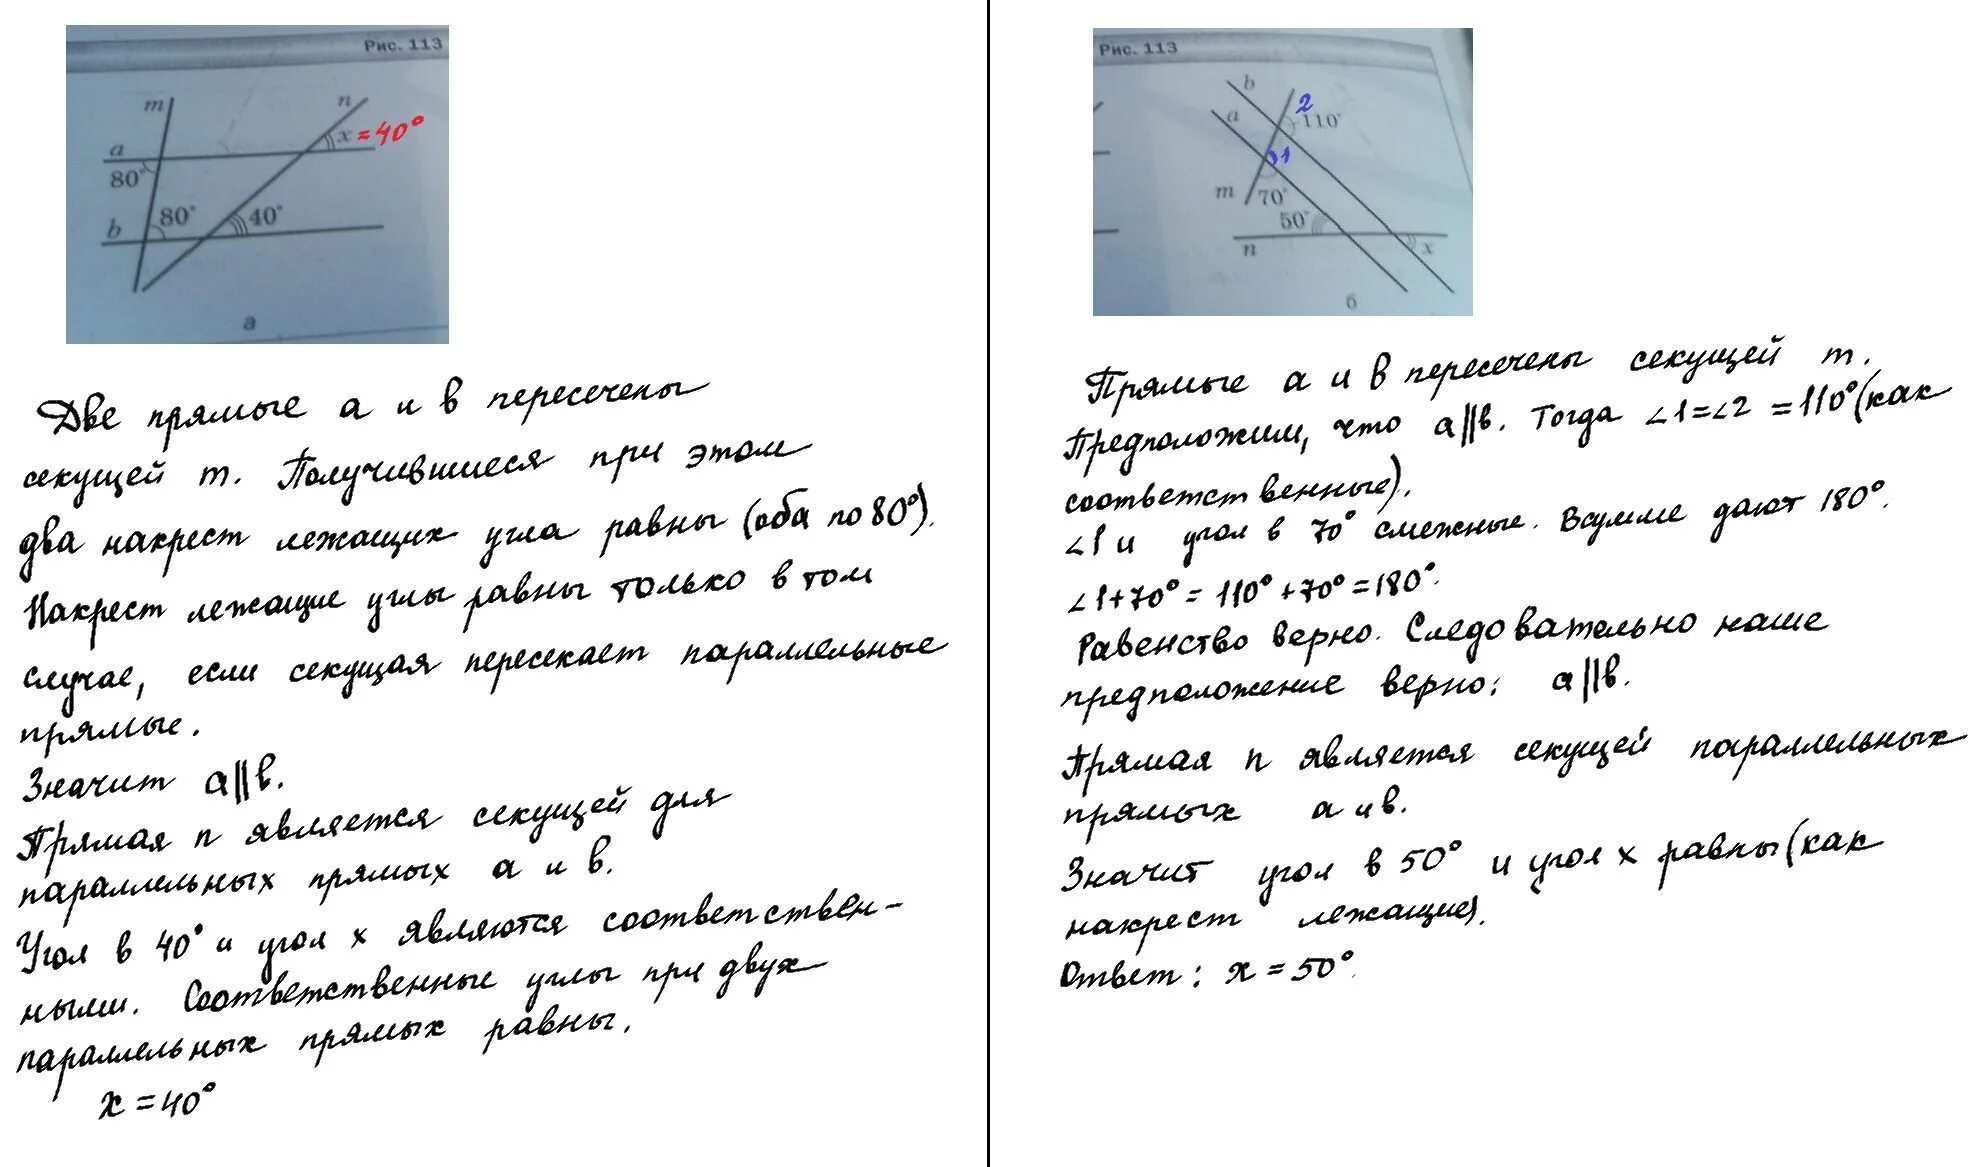 Рис. 113
m
n
x = 40°
a
80°
80°
40°
b
а
Две прямые a и b пересечены
секущей m. Получившиеся при этом
два накрест лежащих угла равны (оба по 80°).
Накрест лежащие углы равны только в том
случае, если секущая пересекает параллельные
прямые.
Значит a||b.
Прямая n является секущей для
параллельных прямых a и b.
Угол в 40° и угол x являются соответствен-
ными. Соответственные углы при двух
параллельных прямых равны.
x = 40°
Рис. 113
b
2
a
110°
1
m
70°
50°
n
x
б
Прямые a и b пересечены секущей m.
Предположим, что a||b. Тогда ∠1=∠2 =110°(как
соответственные).
∠1 и угол в 70° смежные. В сумме дают 180°.
∠1+70° = 110° +70° =180°.
Равенство верно. Следовательно наше
предположение верно: a||b.
Прямая n является секущей параллельных
прямых a и b.
Значит угол в 50° и угол x равны (как
накрест лежащие).
Ответ: x = 50°.